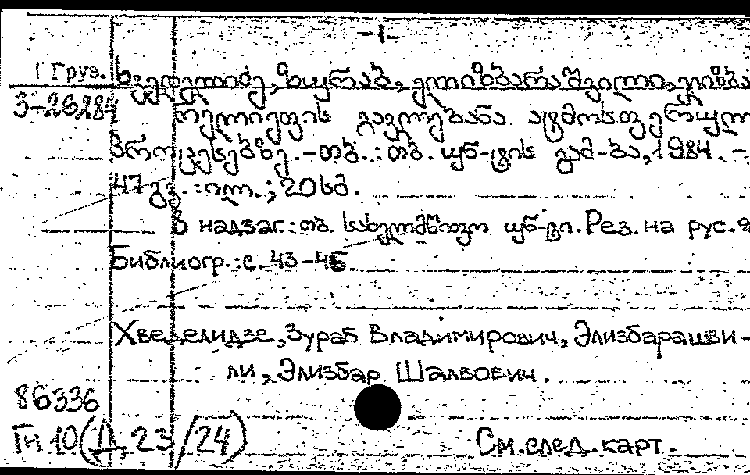 - 1 -
Груз. ხვედელიძე, ზურაბ, ელიზბარაშვილი, ელიზბა
3-26284 რელიეფის გავლენა ატმოსფერულ
პროცესებზე. - თბ.: თბ. უნ-ტის გამ-ბა, 1984. -
47 გვ. : ილ.; 20 სმ.
В надзаг.: თბ. სახელმწიფო უნ-ტი. Рез. на рус. я
Библиогр.: с. 43-46.
Хведелидзе, Зураб Владимирович, Элизбарашви-
ли, Элизбар Шалвович.
86336
Гн 10(Д, 23/24)
См. след. карт.